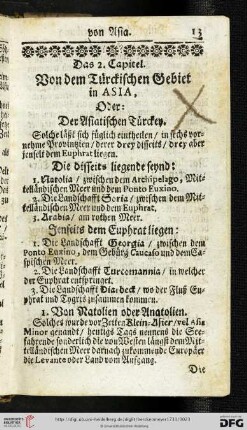 von Asia. 13
Das 2. Capitel.
Von dem Türckischen Gebiet
in ASIA,
Oder:
Der Asiatischen Türckey.
Solche läßt sich füglich eintheilen / in sechs vor-
nehme Provintzien / derer drey disseits / drey aber
jenseit dem Euphrat liegen.
Die disseits liegende seynd:
1. Natolia / zwischen dem Archipelago, Mit-
telländischen Meer und dem Ponto Euxino.
2. Die Landschafft Soria / zwischen dem Mit-
telländischen Meer und dem Euphrat.
3. Arabia / am rothen Meer.
Jenseits dem Euphrat liegen:
1. Die Landschafft Georgia / zwischen dem
Ponto Euxino, dem Gebürg Caucaso und dem Ca-
spischen Meer.
2. Die Landschafft Turcomannia / in welcher
der Euphrat entspringet.
3. Die Landschafft Diarbeck / wo der Fluß Eu-
phrat und Tygris zusammen kommen.
1. Von Natolien oder Anatolien.
Solches wurde vor Zeiten Klein-Asien / vel Asia
Minor genandt / heutigs Tags nennens die See-
fahrende sonderlich die von Westen längst dem Mit-
telländischen Meer darnach zukommende Europäer
die Levante oder Land vom Aufgang.
Die
http://digi.ub.uni-heidelberg.de/diglit/
© Universitätsbibliothek Heidelberg
gefördert durch die
DFG